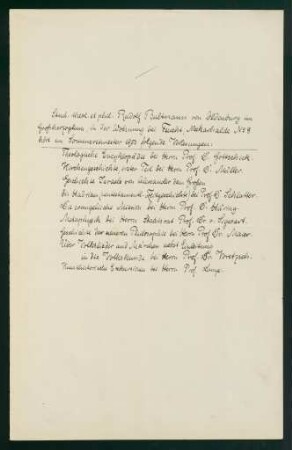 Stud. theol. et phil. Rudolf Bultmann von Oldenburg im
Großherzogtum, in der Wohnung bei Fuchs, Neckarhalde N° 9
hört im Sommersemester folgende Vorlesungen:
Theologische Encyklopädie bei Herrn Prof. D. Gottschick.
Kirchengeschichte erster Teil bei Herrn Prof. D. Müller.
Geschichte Israels von Alexander dem Großen
bei Herrn Prof. D. Schlatter.
Die evangelische bei Herrn Prof. D. Häring
Metaphysik bei Herrn Prof. Dr. v. Sigwart.
Geschichte der neueren Philosophie bei Herrn Prof. Dr. Maier
Über Volkslieder und Märchen nebst Einleitung
in die Volkskunde bei Herrn Prof. Dr. Voretzsch.
Kunsthistorische Exkursionen bei Herrn Prof. Lange.